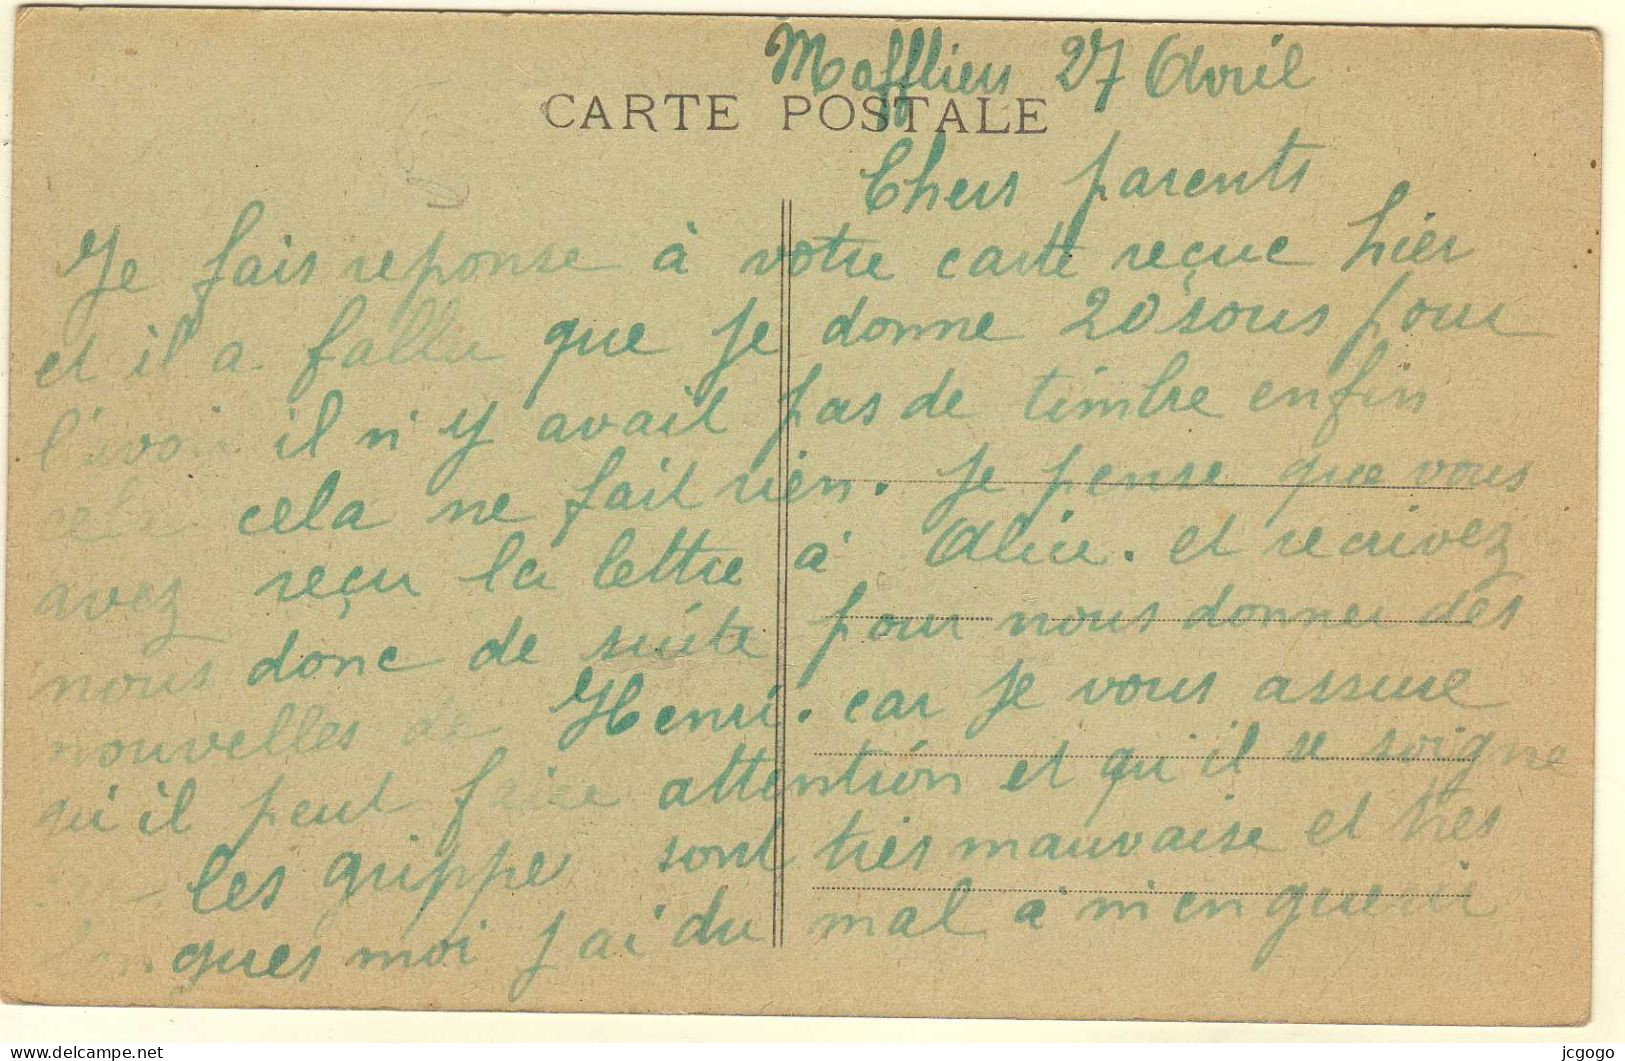 Maffliers 27 Avril
CARTE POSTALE
Chers parents
Je fais reponse à votre carte reçue hier
et il a fallu que je donne 20 sous pour
l'avoir il n'y avait pas de timbre enfin
cela cela ne fait rien. Je pense que vous
avez reçu la lettre à Alice. et recrivez
nous donc de suite pour nous donner des
nouvelles de Henri. car je vous assure
qu'il peut faire attention et qu'il se soigne
les grippe sont très mauvaise et tres
ques moi j'ai du mal à m'en guerir
jcgogo